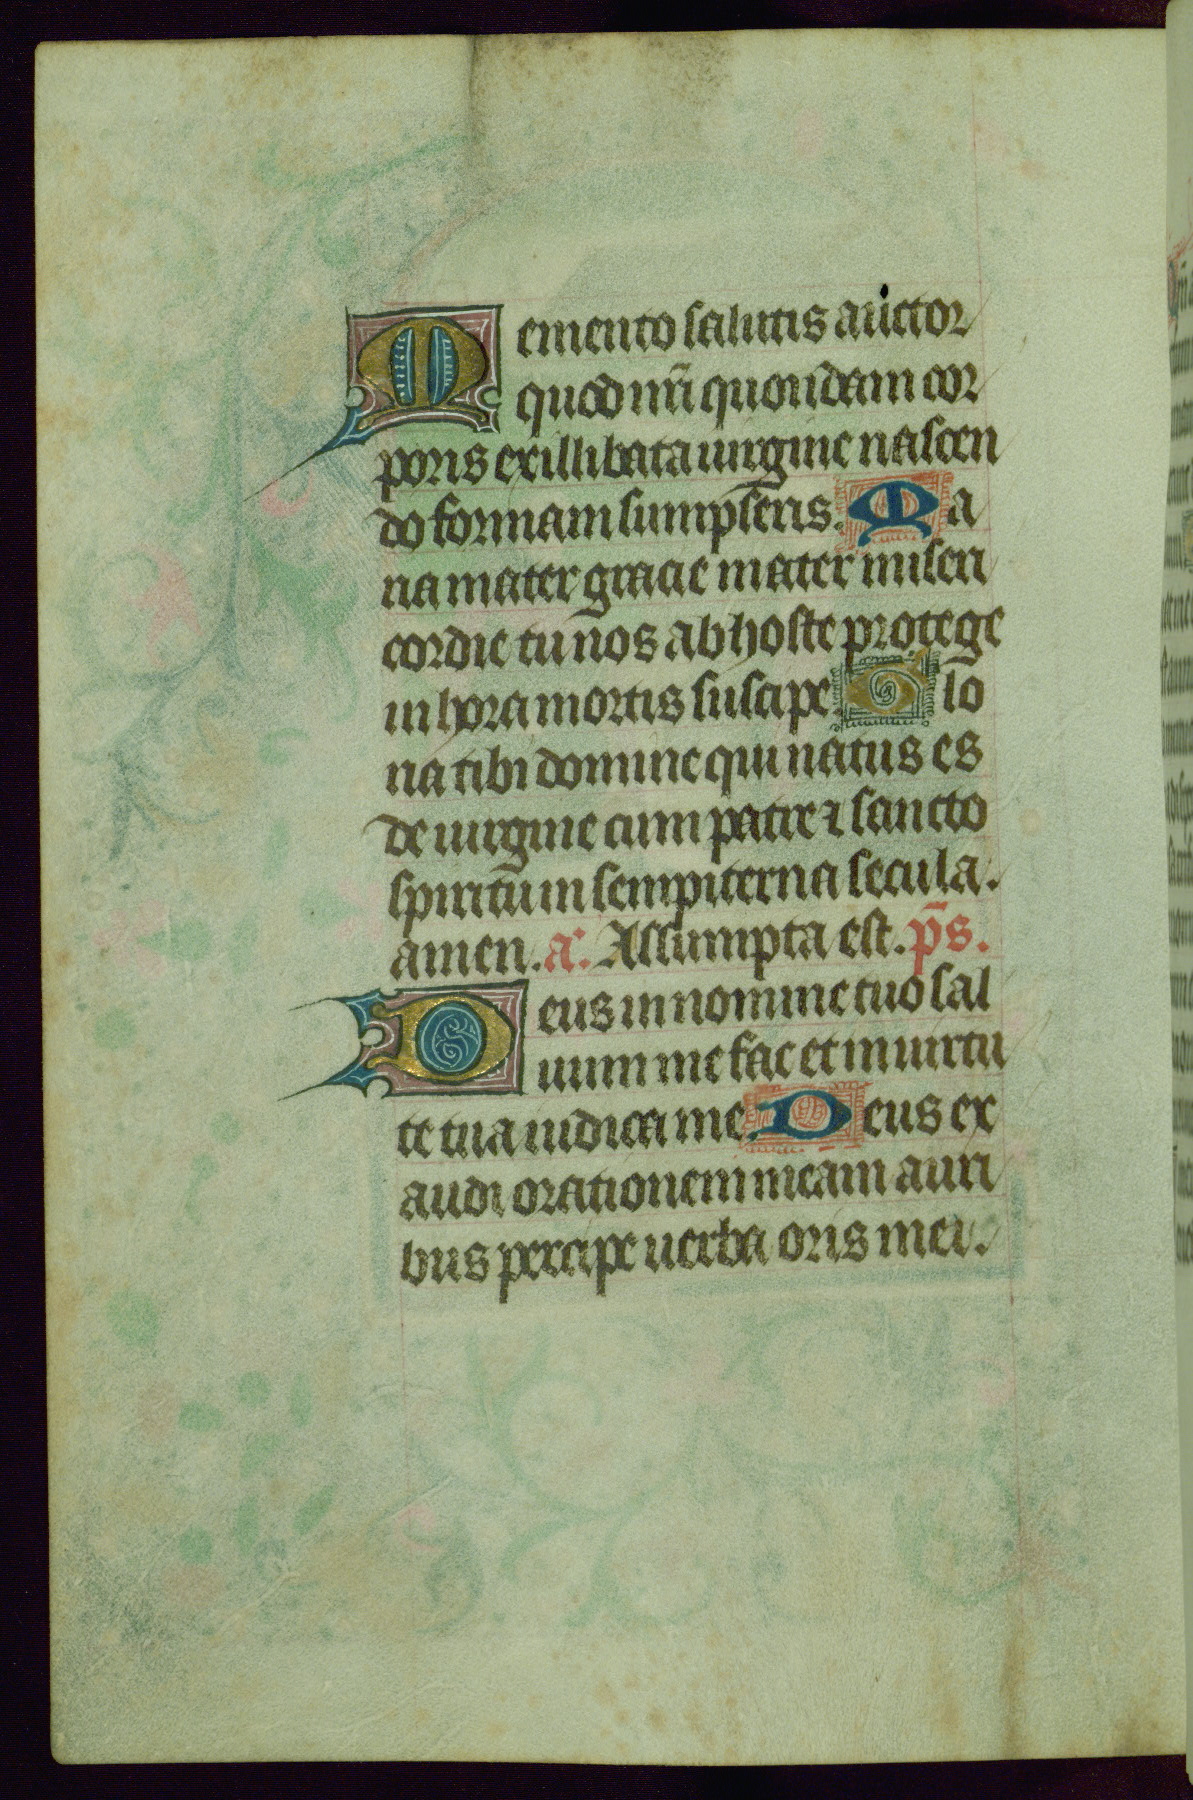 Memento salutis auctor
quod nr̃i quondam cor
poris ex illibata uirgine nascen
do formam sumpseris. Ma
ria mater gracie mater miseri
cordie tu nos ab hoste protege
in hora mortis suscipe. Glo
ria tibi domine qui natus es
de uirgine cum patre ⁊ sancto
spiritu in sempiterna secula.
amen. a. Assumpta est. p̄s.
Deus in nomine tuo sal
uum me fac et in uirtu
te tua iudica me. Deus ex
audi orationem meam auri
bus percipe uerba oris mei.